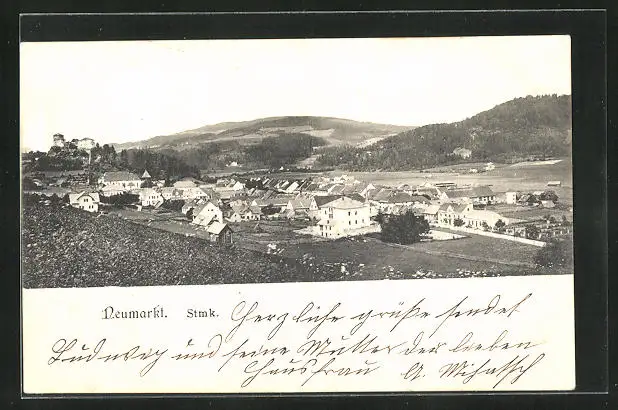 Neumarkt. Stmk. Herzliche grüße sendet
Ludwig und seine Mutter der lieben
Hausfrau A. Mihatsch